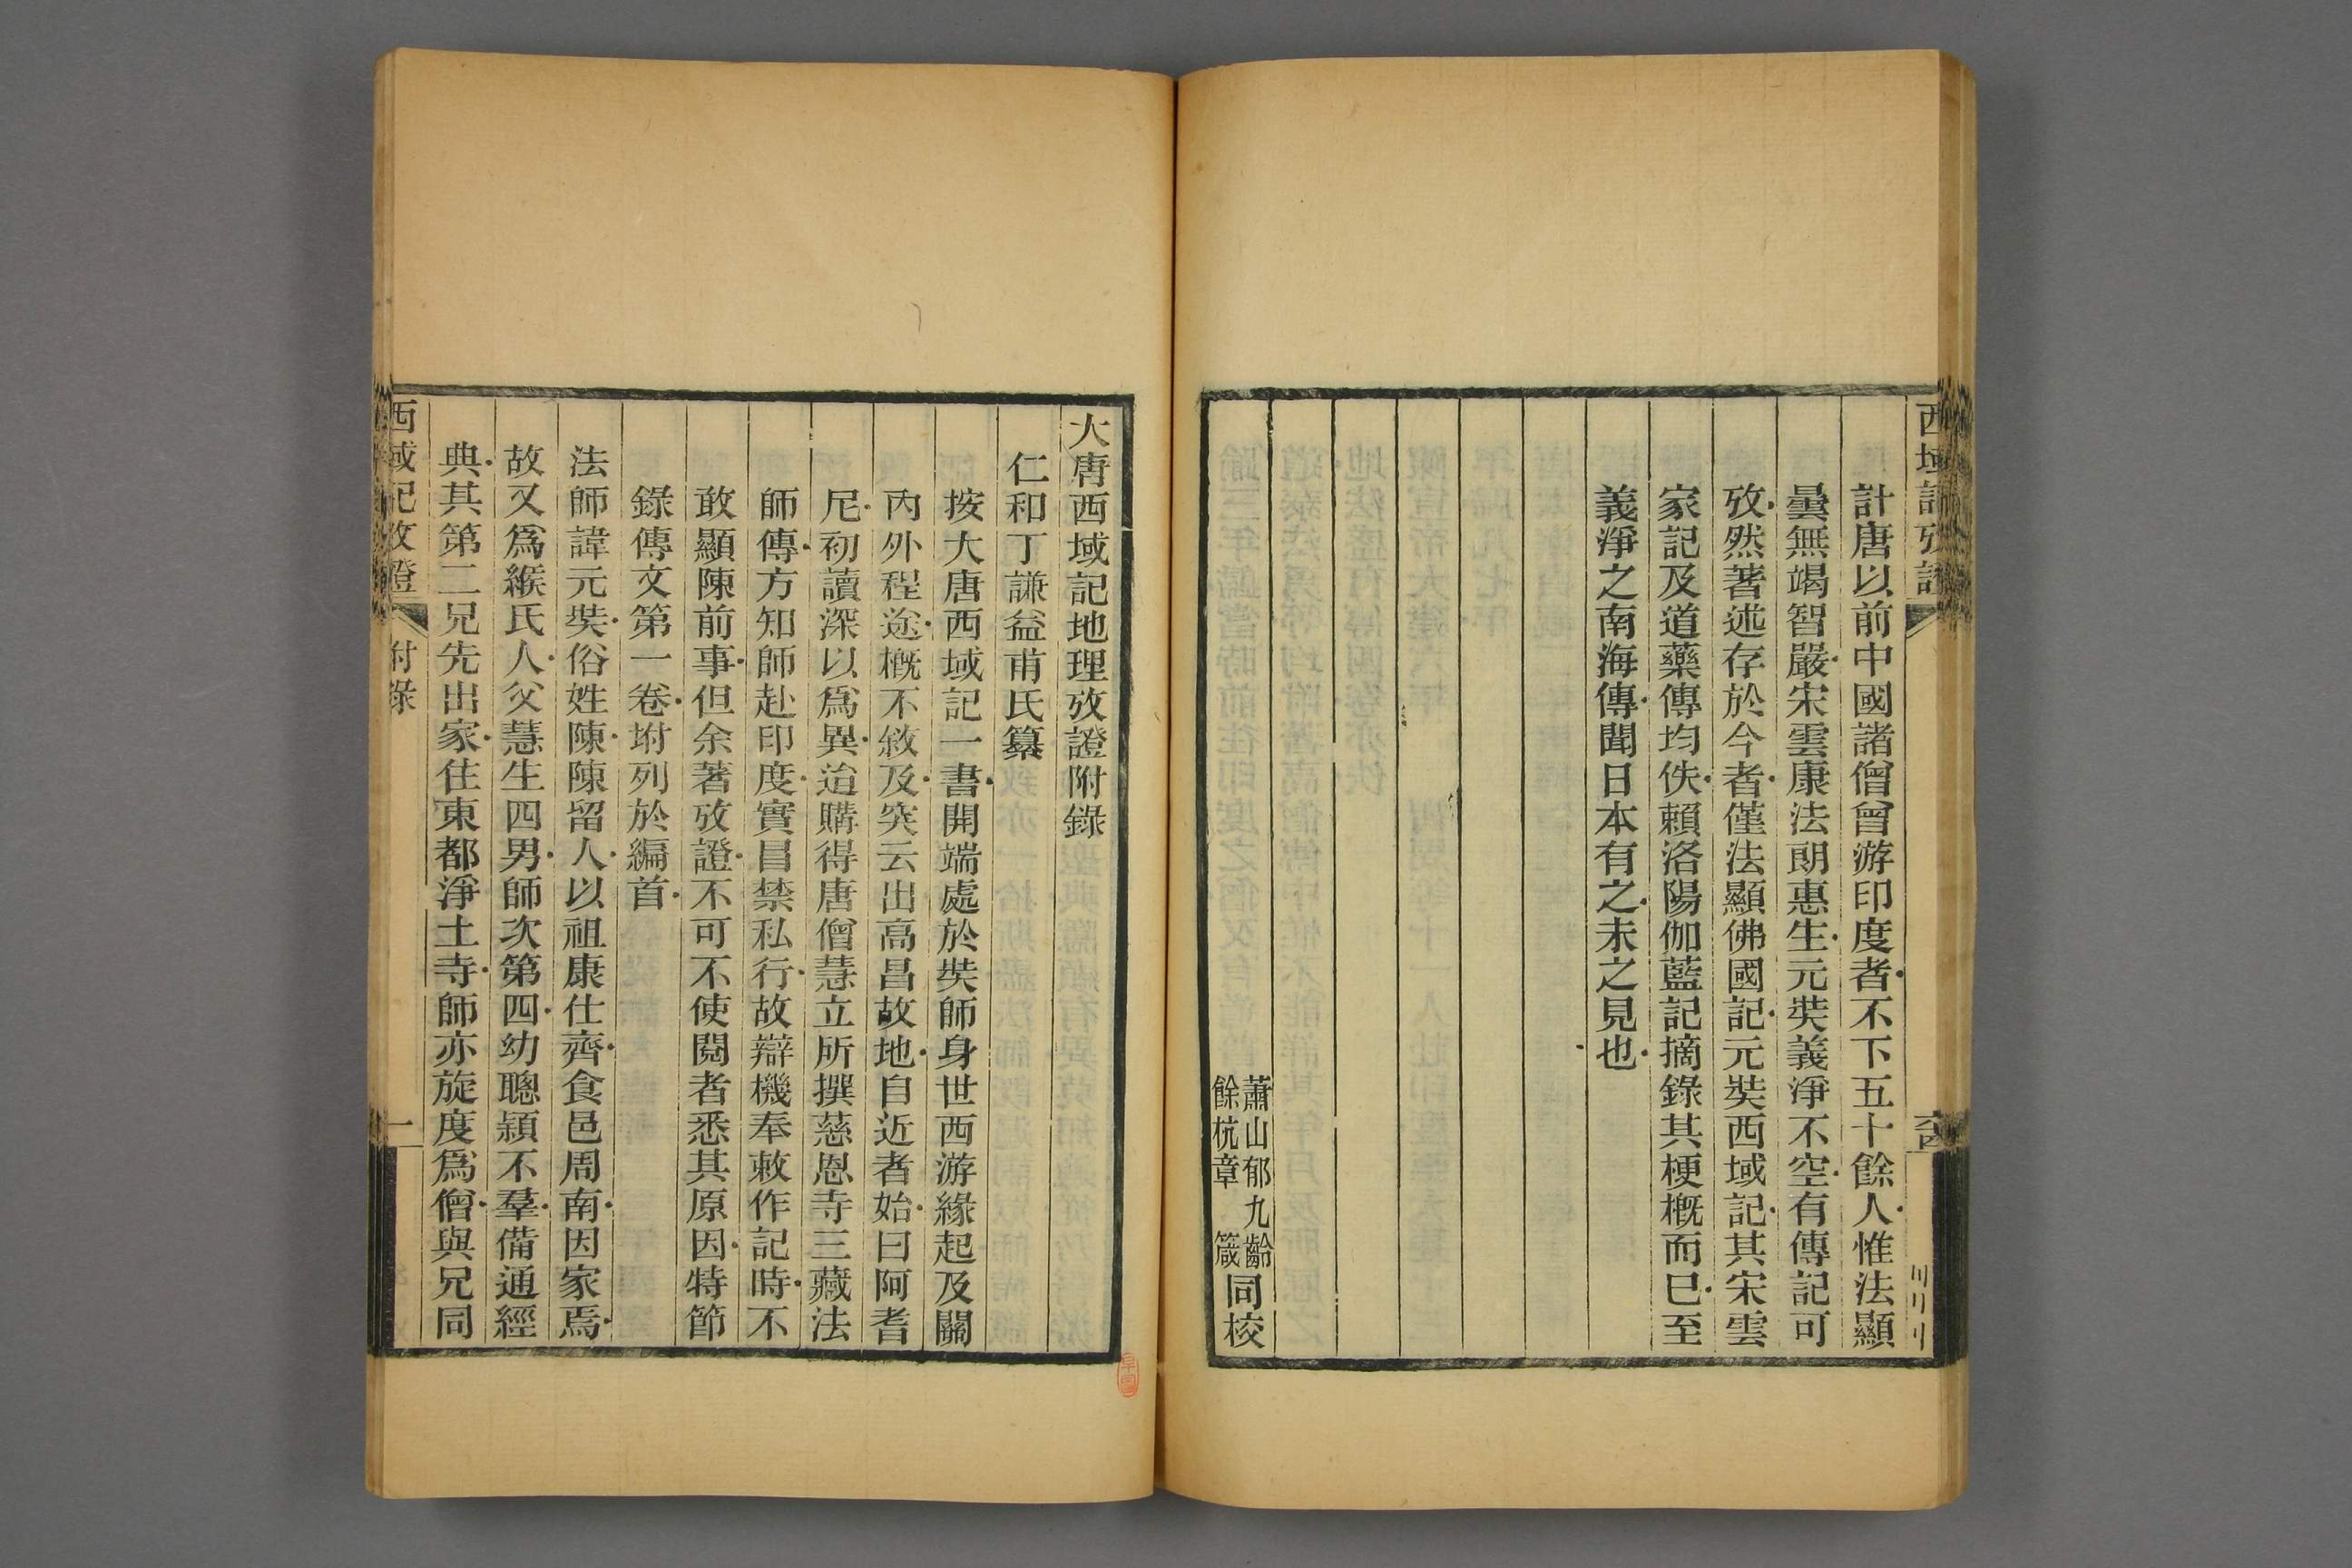 西域記攷證
計唐以前中國諸僧曾游印度者不下五十餘人惟法顯
曇無竭智嚴宋雲康法朗惠生元奘義淨不空有傳記可
攷然著述存於今者僅法顯佛國記元奘西域記其宋雲
家記及道藥傳均佚賴洛陽伽藍記摘錄其梗概而已至
義淨之南海傳聞日本有之未之見也
蕭山郁九齡
餘杭章箴
同校
大唐西域記地理攷證附錄
仁和丁謙益甫氏纂
按大唐西域記一書開端處於奘師身世西游緣起及關
內外程途概不敘及突云出高昌故地自近者始曰阿耆
尼初讀深以爲異迨購得唐僧慧立所撰慈恩寺三藏法
師傳方知師赴印度實冒禁私行故辯機奉敕作記時不
敢顯陳前事但余著攷證不可不使閱者悉其原因特節
錄傳文第一卷坿列於編首
法師諱元奘俗姓陳陳留人以祖康仕齊食邑周南因家焉
故又爲緱氏人父慧生四男師次第四幼聰穎不羣備通經
典其第二兄先出家住東都淨土寺師亦旋度爲僧與兄同
西域記攷證
附錄
一